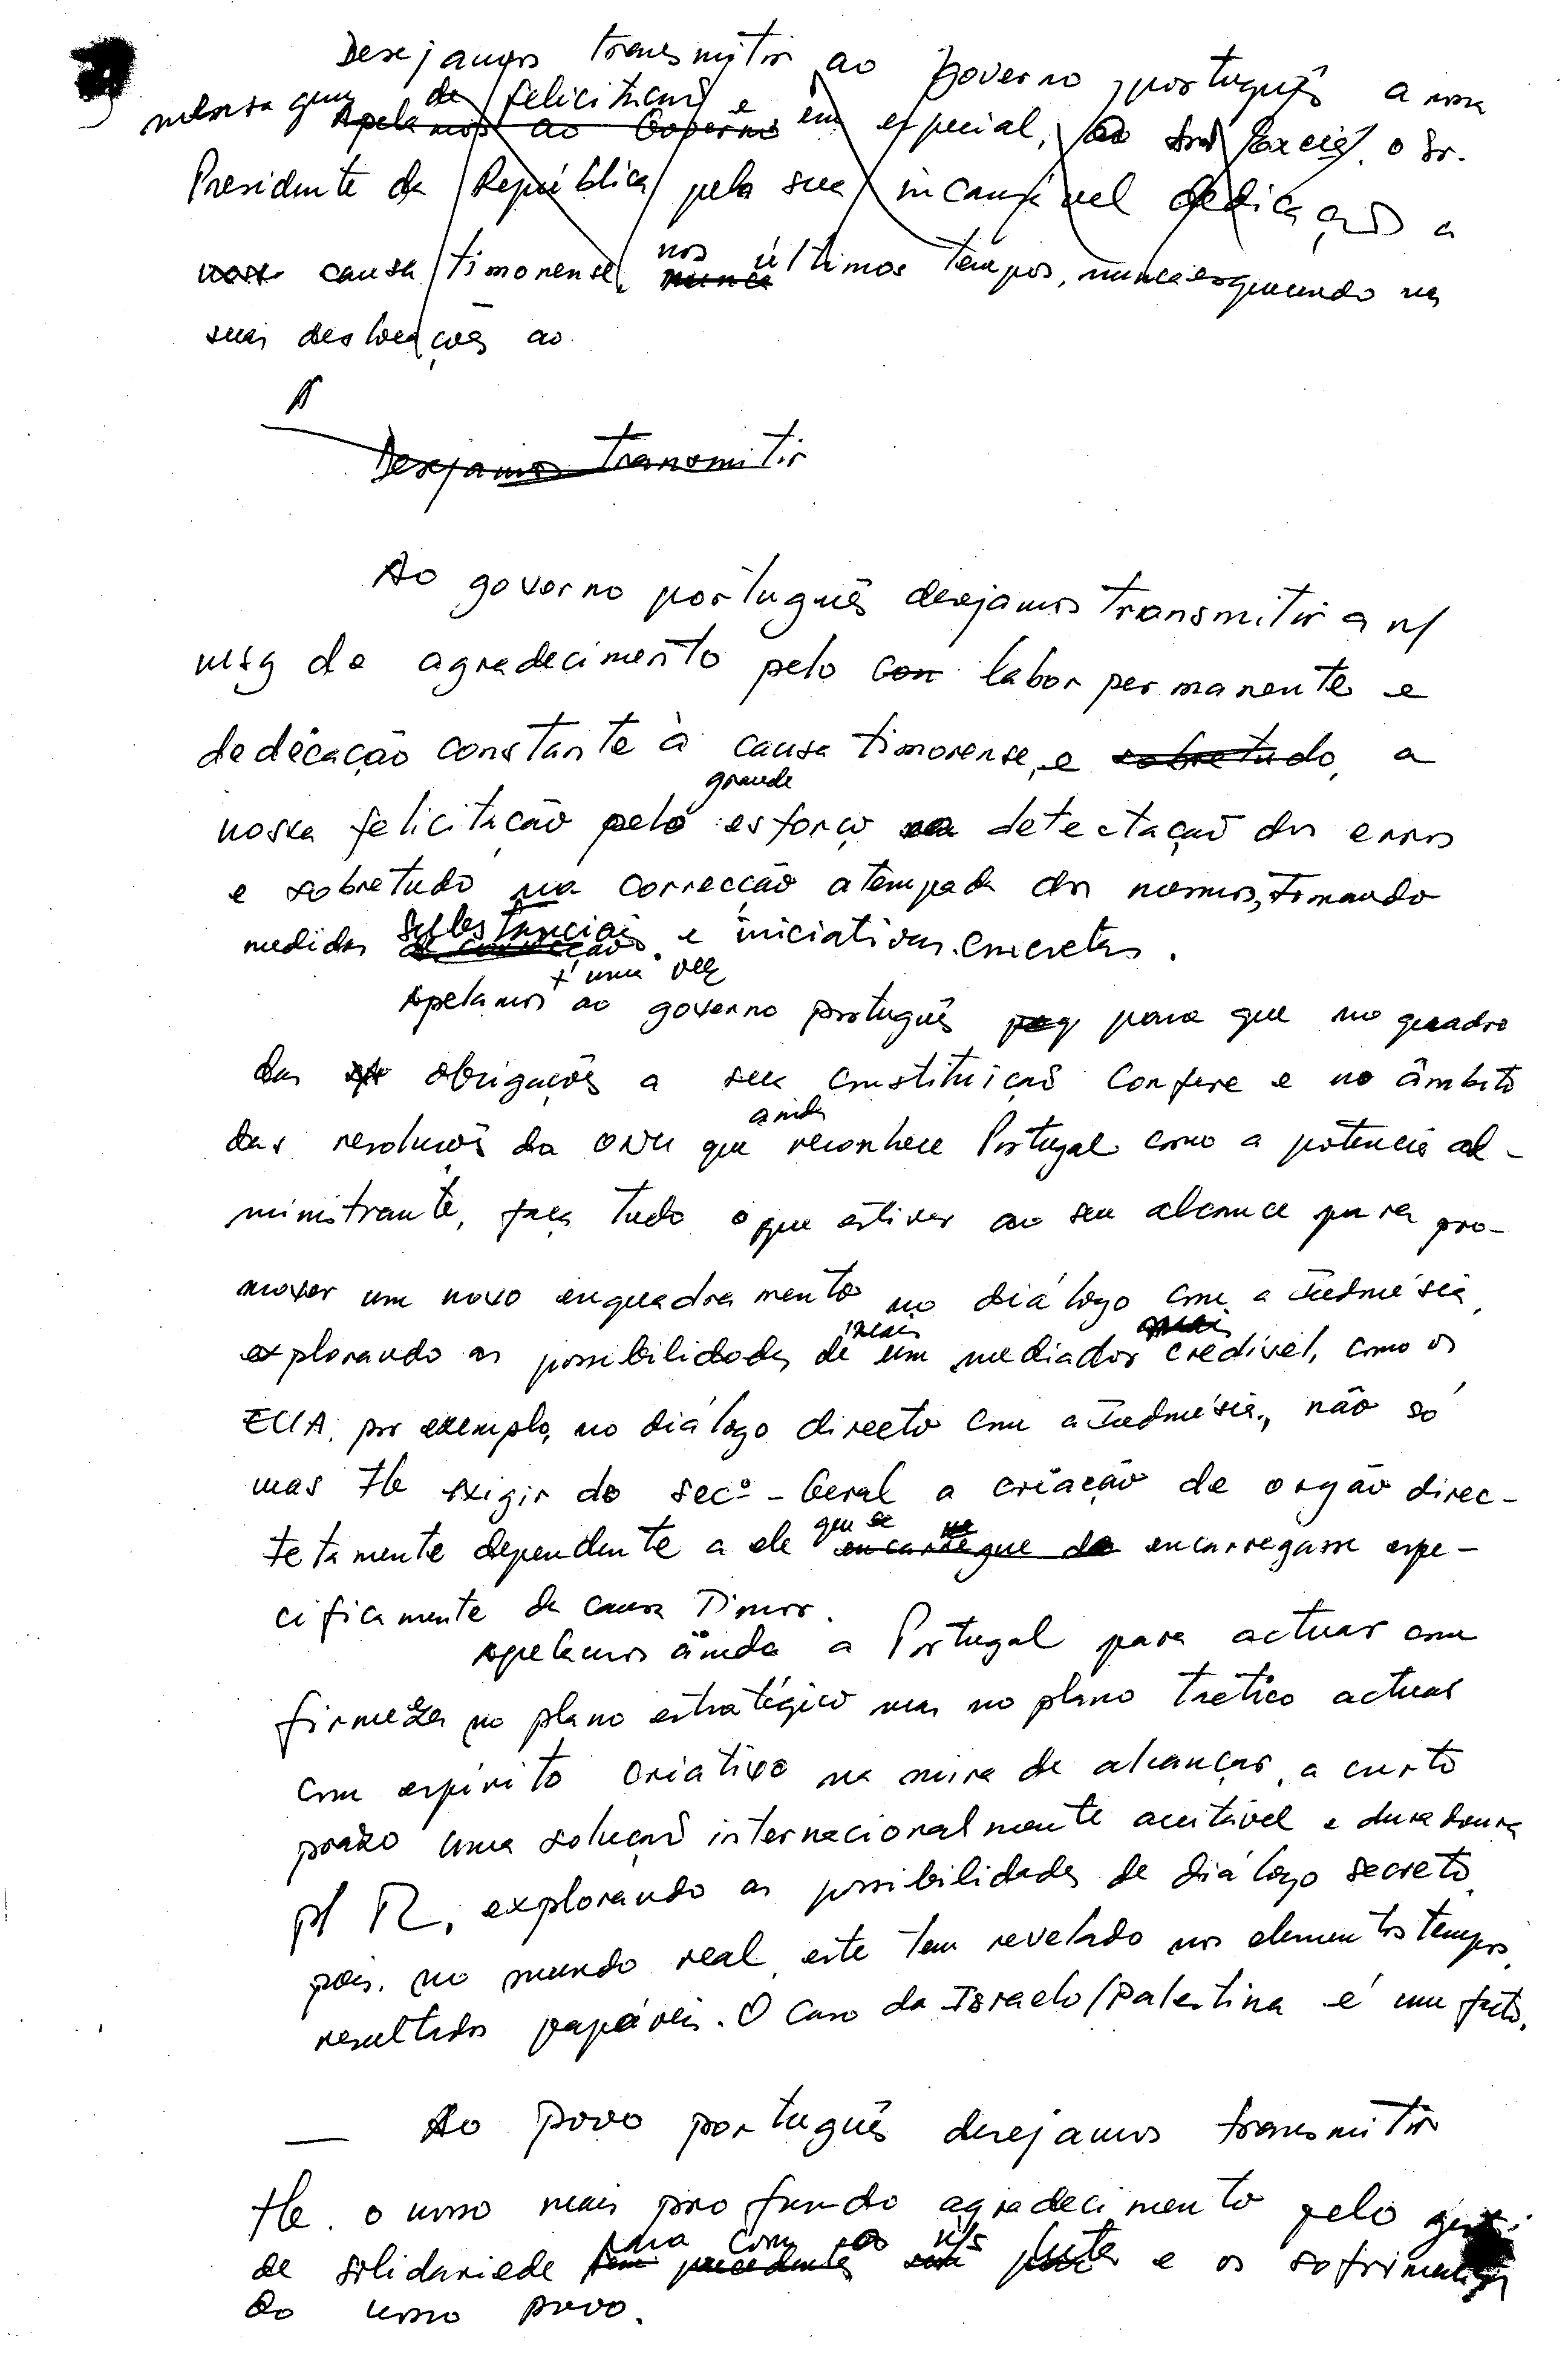 Desejamos transmitir ao Governo português a nossa
mensagem de felicitação e em especial, ao Sua Excia. o Sr.
Apelamos ao Governo
Presidente da República pela sua incansável dedicação a
causa timorense, nos últimos tempos, nunca esquecendo nas
nunca
suas deslocações ao
Desejamos transmitir
Ao governo português desejamos transmitir a n/
msg de agradecimento pelo con labor permanente e
dedicação constante à causa timorense, e sobretudo, a
nossa felicitação pelo grande esforço na detectação dos erros
e sobretudo na correcção atempada dos mesmos, tomando
medidas substanciais e iniciativas concretas.
de correcção
Apelamos + uma vez ao governo português para que no quadro
das obrigações a sua constituição confere e no âmbito
das resoluções da ONU que ainda reconhece Portugal como a potência ad-
ministrante, faça tudo o que estiver ao seu alcance para pro-
mover um novo enquadramento no diálogo com a Indonésia,
explorando as possibilidades de mais um mediador credível, como os
mais
EUA, por exemplo, no diálogo directo com a Indonésia, não só
mas tb exigir do Sec.º - Geral a criação de orgão direc-
tetamente dependente a ele que se encarregasse espe-
encarregue de
cificamente da causa Timor.
Apelamos ainda a Portugal para actuar com
firmeza no plano estratégico mas no plano tactico actuar
com espírito criativo na mira de alcançar, a curto
prazo uma solução internacionalmente aceitável e duradoura
p/ TL, explorando as possibilidades de diálogo secreto
pois, no mundo real, este tem revelado nos tempos,
resultados papáveis. O caso da Israelo/Palestina é um facto.
— Ao povo português desejamos transmitir
tb. o nosso mais profundo agradecimento pelo
de solidariedade para com a n/s luta e os sofrimentos
sem precedentes
do nosso povo.